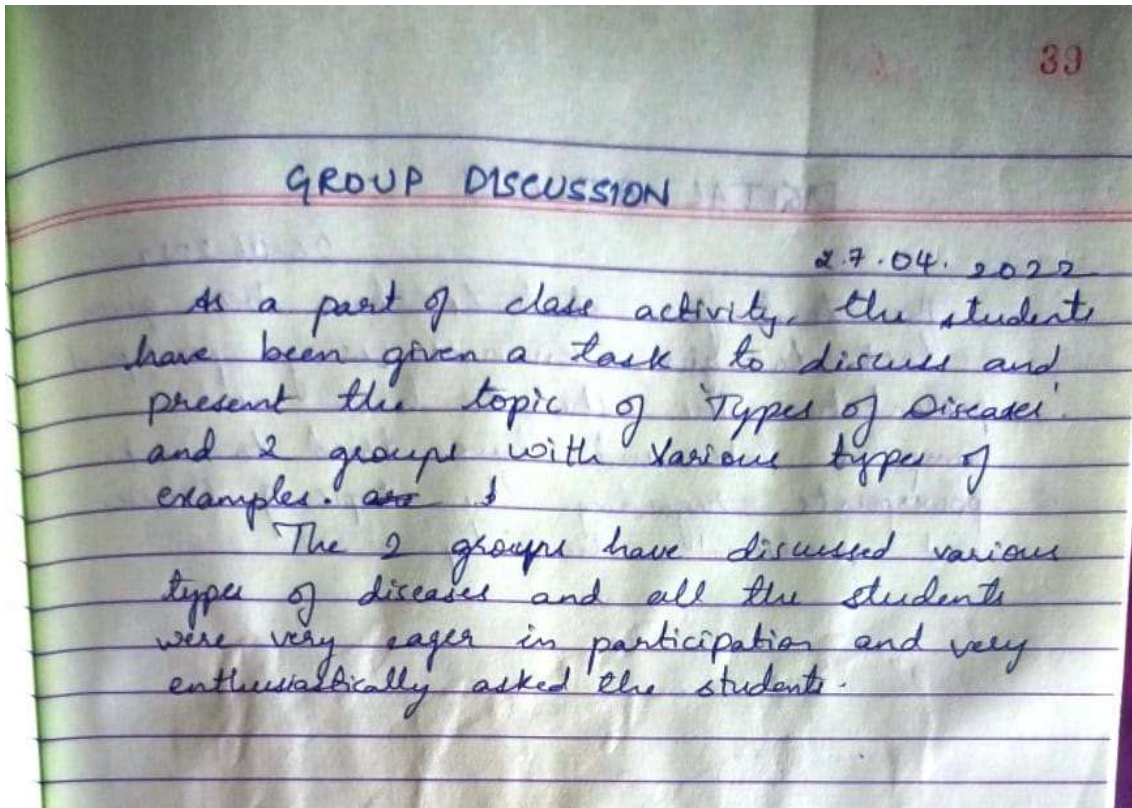 39
GROUP DISCUSSION
27.04.2022
As a part of class activity, the students
have been given a task to discuss and
present the topic of 'Types of Diseases'
and 2 groups with various types of
examples.
The 2 groups have discussed various
types of diseases and all the students
were very eager in participation and very
enthusiastically asked the students.